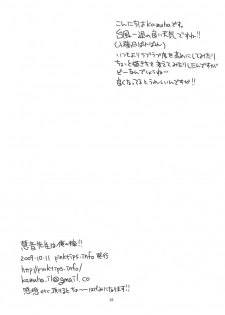 こんにちは kamahaです。
台風一過の良い天気ですね!!
いつもよりラブラブ度を高めにしてみたり
ちょっと描き方を変えてみたりしたんですが
どーなんでしょうね…
良くなってるとうれしいんですが!!
慧音先生は俺の嫁!!
2009.10.11 pinktips.info 発行
http://pinktips.info/
感想etc頂けるとちょーはげみになります!!